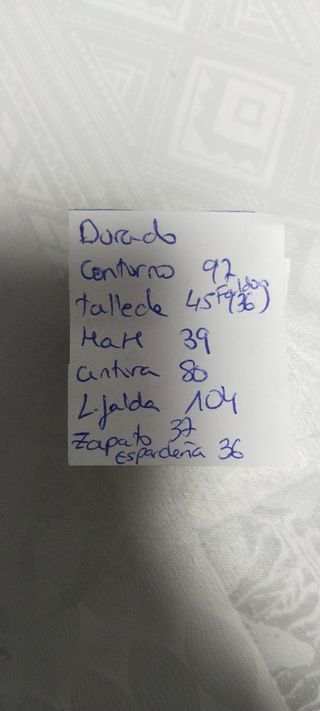 Dorado
Contorno 92
tallede 45 (36)
HaH 39
cintura 80
L. falda 104
Zapato 37
Espardeña 36